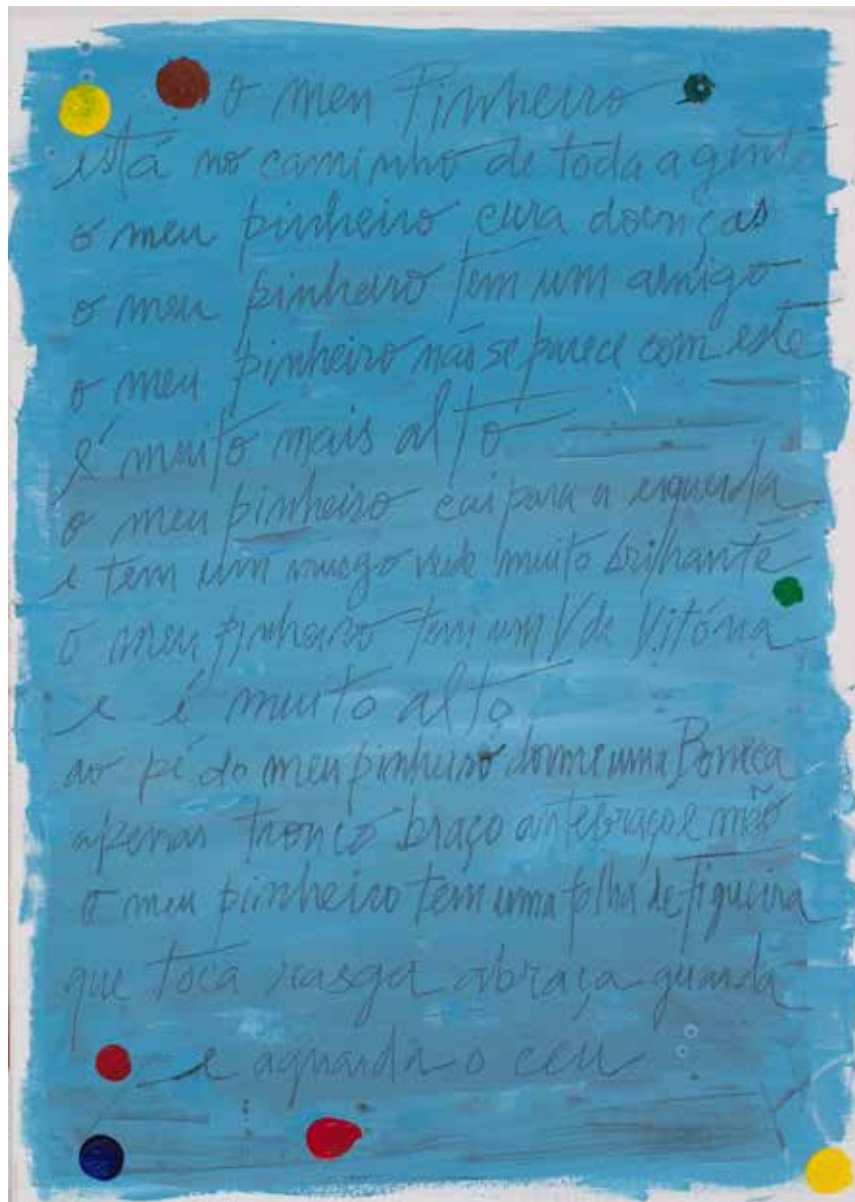 o meu Pinheiro
está no caminho de toda a gente
o meu pinheiro cura doenças
o meu pinheiro tem um amigo
o meu pinheiro não se parece com este
é muito mais alto
o meu pinheiro cai para a esquerda
e tem um musgo verde muito brilhante
o meu pinheiro tem um V de Vitória
e é muito alto
ao pé do meu pinheiro dorme uma Boneca
apenas tronco braço antebraço e mão
o meu pinheiro tem uma folha de figueira
que toca rasga abraça guarda
e aguarda o ceu